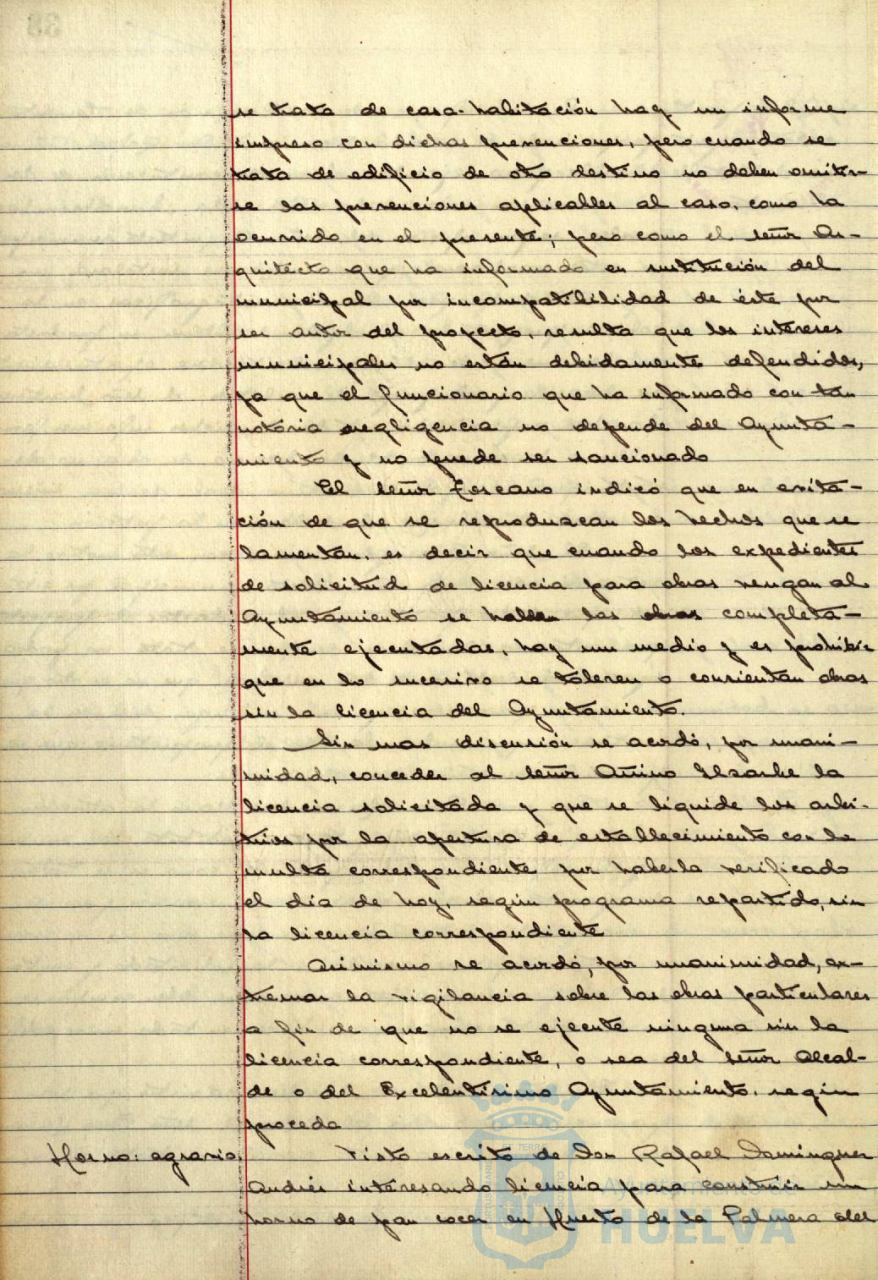 se trata de casa-habitación hay un informe
impreso con dichas prevenciones, pero cuando se
trata de edificio de otro destino no deben omitir-
se las prevenciones aplicables al caso, como ha
ocurrido en el presente; pero como el señor Ar-
quitecto que ha informado en sustitución del
municipal por incompatibilidad de éste por
ser autor del proyecto, resulta que los intereses
municipales no están debidamente defendidos,
ya que el funcionario que ha informado con tan
notoria negligencia no depende del Ayunta-
miento y no puede ser sancionado
El señor Lescano indicó que en evita-
ción de que se reproduzcan los hechos que se
lamentan, es decir que cuando los expedientes
de solicitud de licencia para obras vengan al
Ayuntamiento se hallen las obras completa-
mente ejecutadas, hay un medio y es prohibir
que en lo sucesivo se toleren o consientan obras
sin la licencia del Ayuntamiento.
Sin mas discusión se acordó, por unani-
midad, conceder al señor la
licencia solicitada y que se liquide los arbi-
trios por la apertura de establecimiento con la
multa correspondiente por haberla verificado
el día de hoy, según programa repartido, sin
la licencia correspondiente
Asimismo se acordó, por unanimidad, ex-
tremar la vigilancia sobre las obras particulares
a fin de que no se ejecute ninguna sin la
licencia correspondiente, o sea del señor Alcal-
de o del Excelentísimo Ayuntamiento, según
proceda
Horno: agrario.
Visto escrito de don Rafael Dominguez
Andrés interesando licencia para construir un
horno de pan cocer en Huerto de la Palmera del
HUELVA